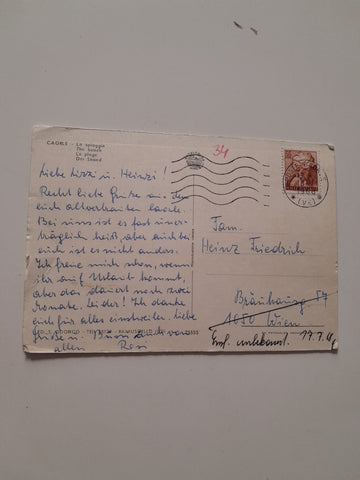 CAORLE - La spiaggia
The beach
La plage
Der Strand
34
Liebe Lizzi u. Heinzi!
Recht liebe Grüße aus dem
euch altvertrauten Caorle.
Bei uns ist es fast uner-
träglich heiß, aber auch bei
euch ist es nicht anders.
Ich freue mich schon, wenn
ihr auf Urlaub kommt,
aber das dauert noch zwei
Monate. leider! Ich danke
euch für alles einstweilen. liebe
Grüße u. Bussi auch von
allen Resi
Fam.
Heinz Friedrich
Bräuhausg. 57
1050 Wien
Empf. unbekannt. 19.7.
(VE)